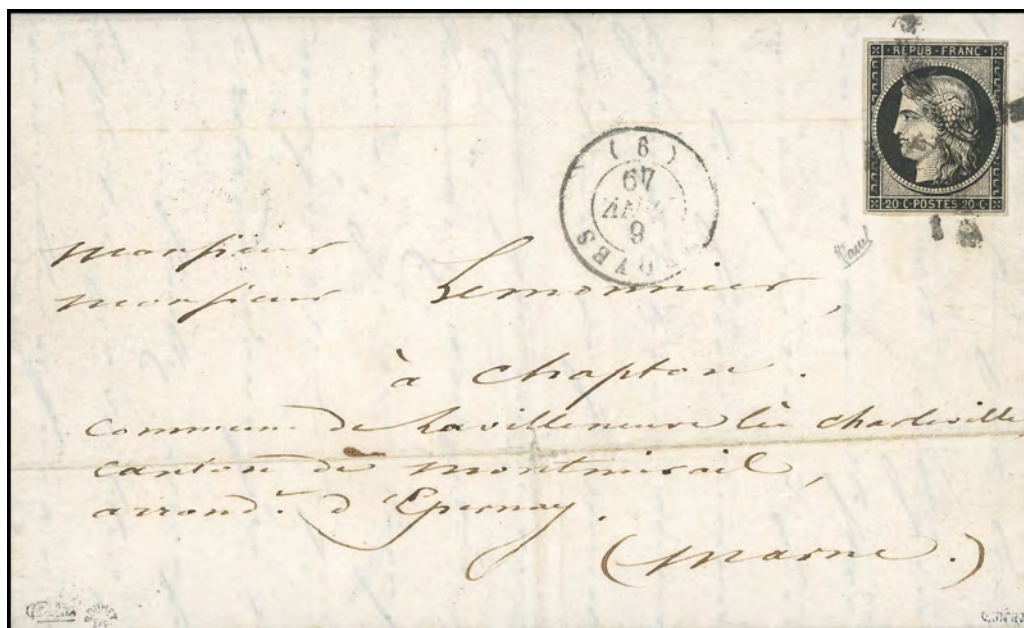 REPUB · FRANC ·
20 · C · POSTES 20 · C ·
(9)
49
JANV
9
monsieur
monsieur Lemonnier,
à Chapton.
commune de Lavilleneuve lès charleville,
canton de montmirail,
arrond.t d'Epernay.
(marne.)